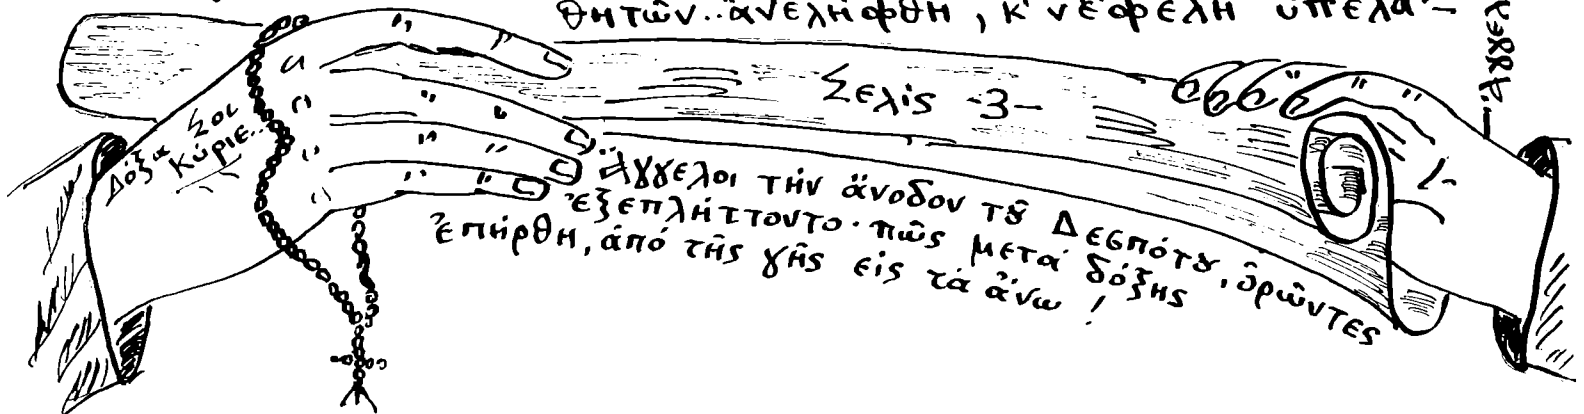 θητῶν..ἀνελήφθη, κ' νεφέλη ὑπέλα-
Σελὶς -3-
Δόξα Σοι
Κύριε...
Ἄγγελοι τήν ἄνοδον τȣ͂ Δεσπότȣ, ὁρῶντες
ἐξεπλήττοντο· πῶς μετά δόξης
ἐπήρθη, ἀπό τῆς γῆς εἰς τά ἄνω !